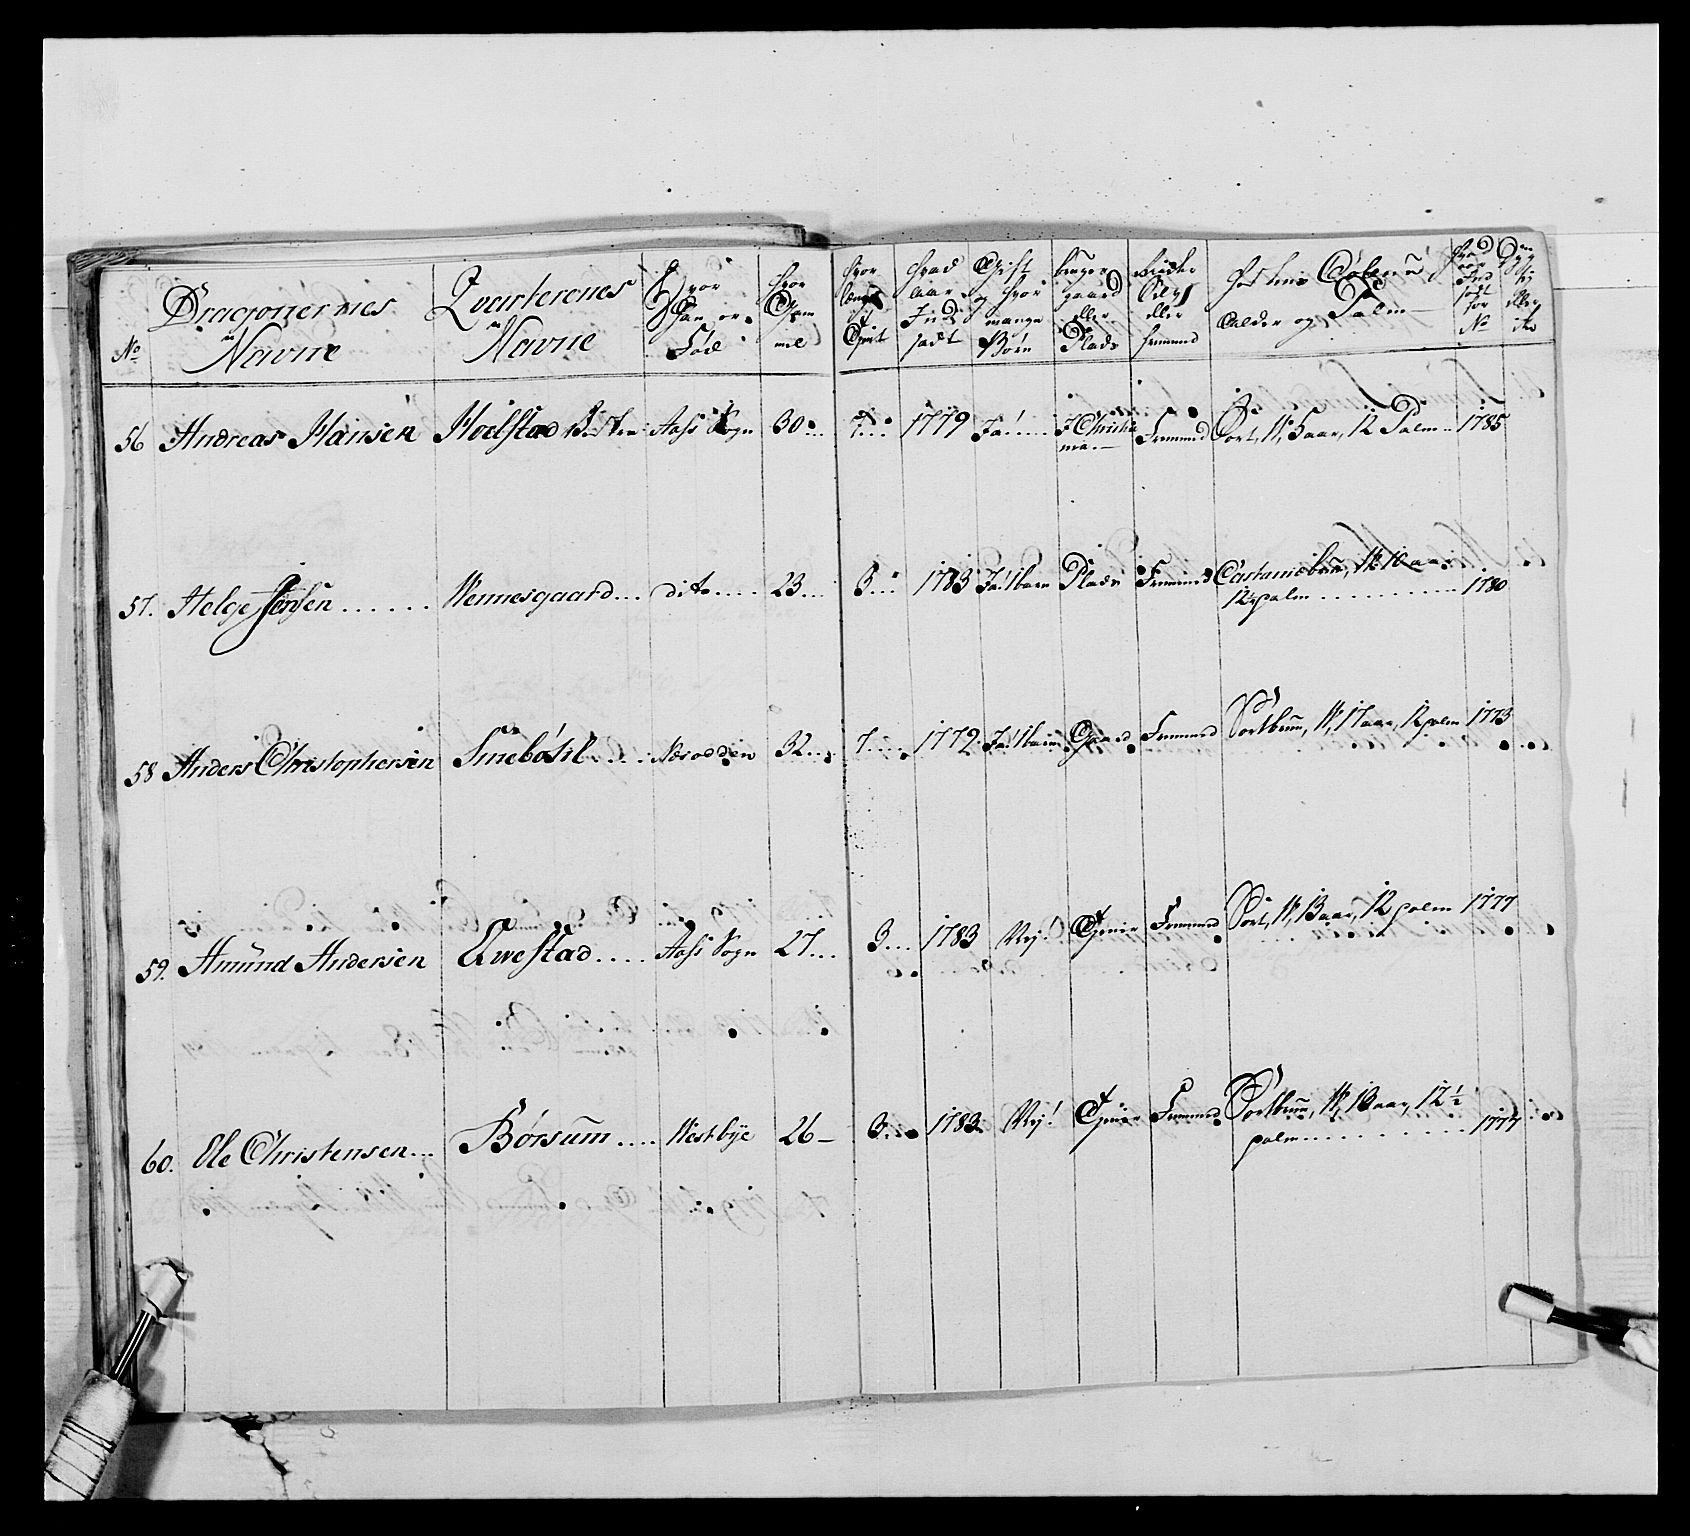 No
Dragonernes
Navne
Qvarterenes
Navne
Hvor
Han er
Fød
Hvor
Gam
mel
Hvor
længe
Tient
Hvad
Aar
Ind
sadt
Gift
og hvor
mange
Børn
bruger
gaard
eller
Plads
Rider
Selv
eller
fremmed
Hestens Coleur
Alder og Palm
56 Andreas Hansen Hoelstad Aass Sogn 30 7 1779 Ja! I Christia Fremmed Sort, 5 aar, 12 Palm 1785
nia
57. Helge Jensen Wennesgaard dito 23 3 1783 Ja! 1 barn Plads Fremmed Castaniebrun, 10 aar
12 palm 1780
58 Anders Christophersen Sneböhl Næsodden 32 7 1779 Ja! 1 barn Gaard Fremmed Sortbrun, 17 aar, 12 palm 1773
59. Amund Andersen Qwestad Aass Sogn 27 3 1783 Nej! Tjener Fremmed Sort, 13 aar, 12 palm 1777
60. Ole Christensen Børsum Westbye 26 3 1783 Nej! Tjener Fremmed Sortbrun, 13 aar, 12 1/2
palm 1777